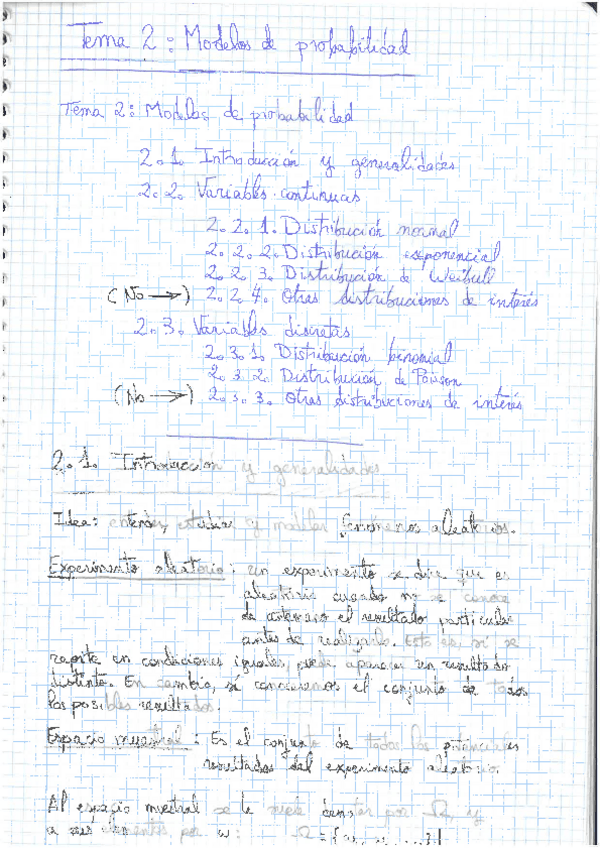 Tema 2: Modelos de probabilidad
Tema 2: Modelos de probabilidad
2.1. Introducción y generalidades
2.2. Variables continuas
2.2.1. Distribución normal
2.2.2. Distribución exponencial
2.2.3. Distribución de Weibull
(No →) 2.2.4. Otras distribuciones de interés
2.3. Variables discretas
2.3.1. Distribución binomial
2.3.2. Distribución de Poisson
(No →) 2.3.3. Otras distribuciones de interés
2.1. Introducción y generalidades
Idea: entender, estudiar y modelar fenómenos aleatorios.
Experimento aleatorio: un experimento se dice que es
aleatorio cuando no se conoce
de antemano el resultado particular
antes de realizarlo. Esto es, si se
repite en condiciones iguales, puede aparecer un resultado
distinto. En cambio, sí conocemos el conjunto de todos
los posibles resultados.
Espacio muestral: Es el conjunto de todos los potenciales
resultados del experimento aleatorio.
Al espacio muestral se le suele denotar por Ω, y
a sus elementos por ω: